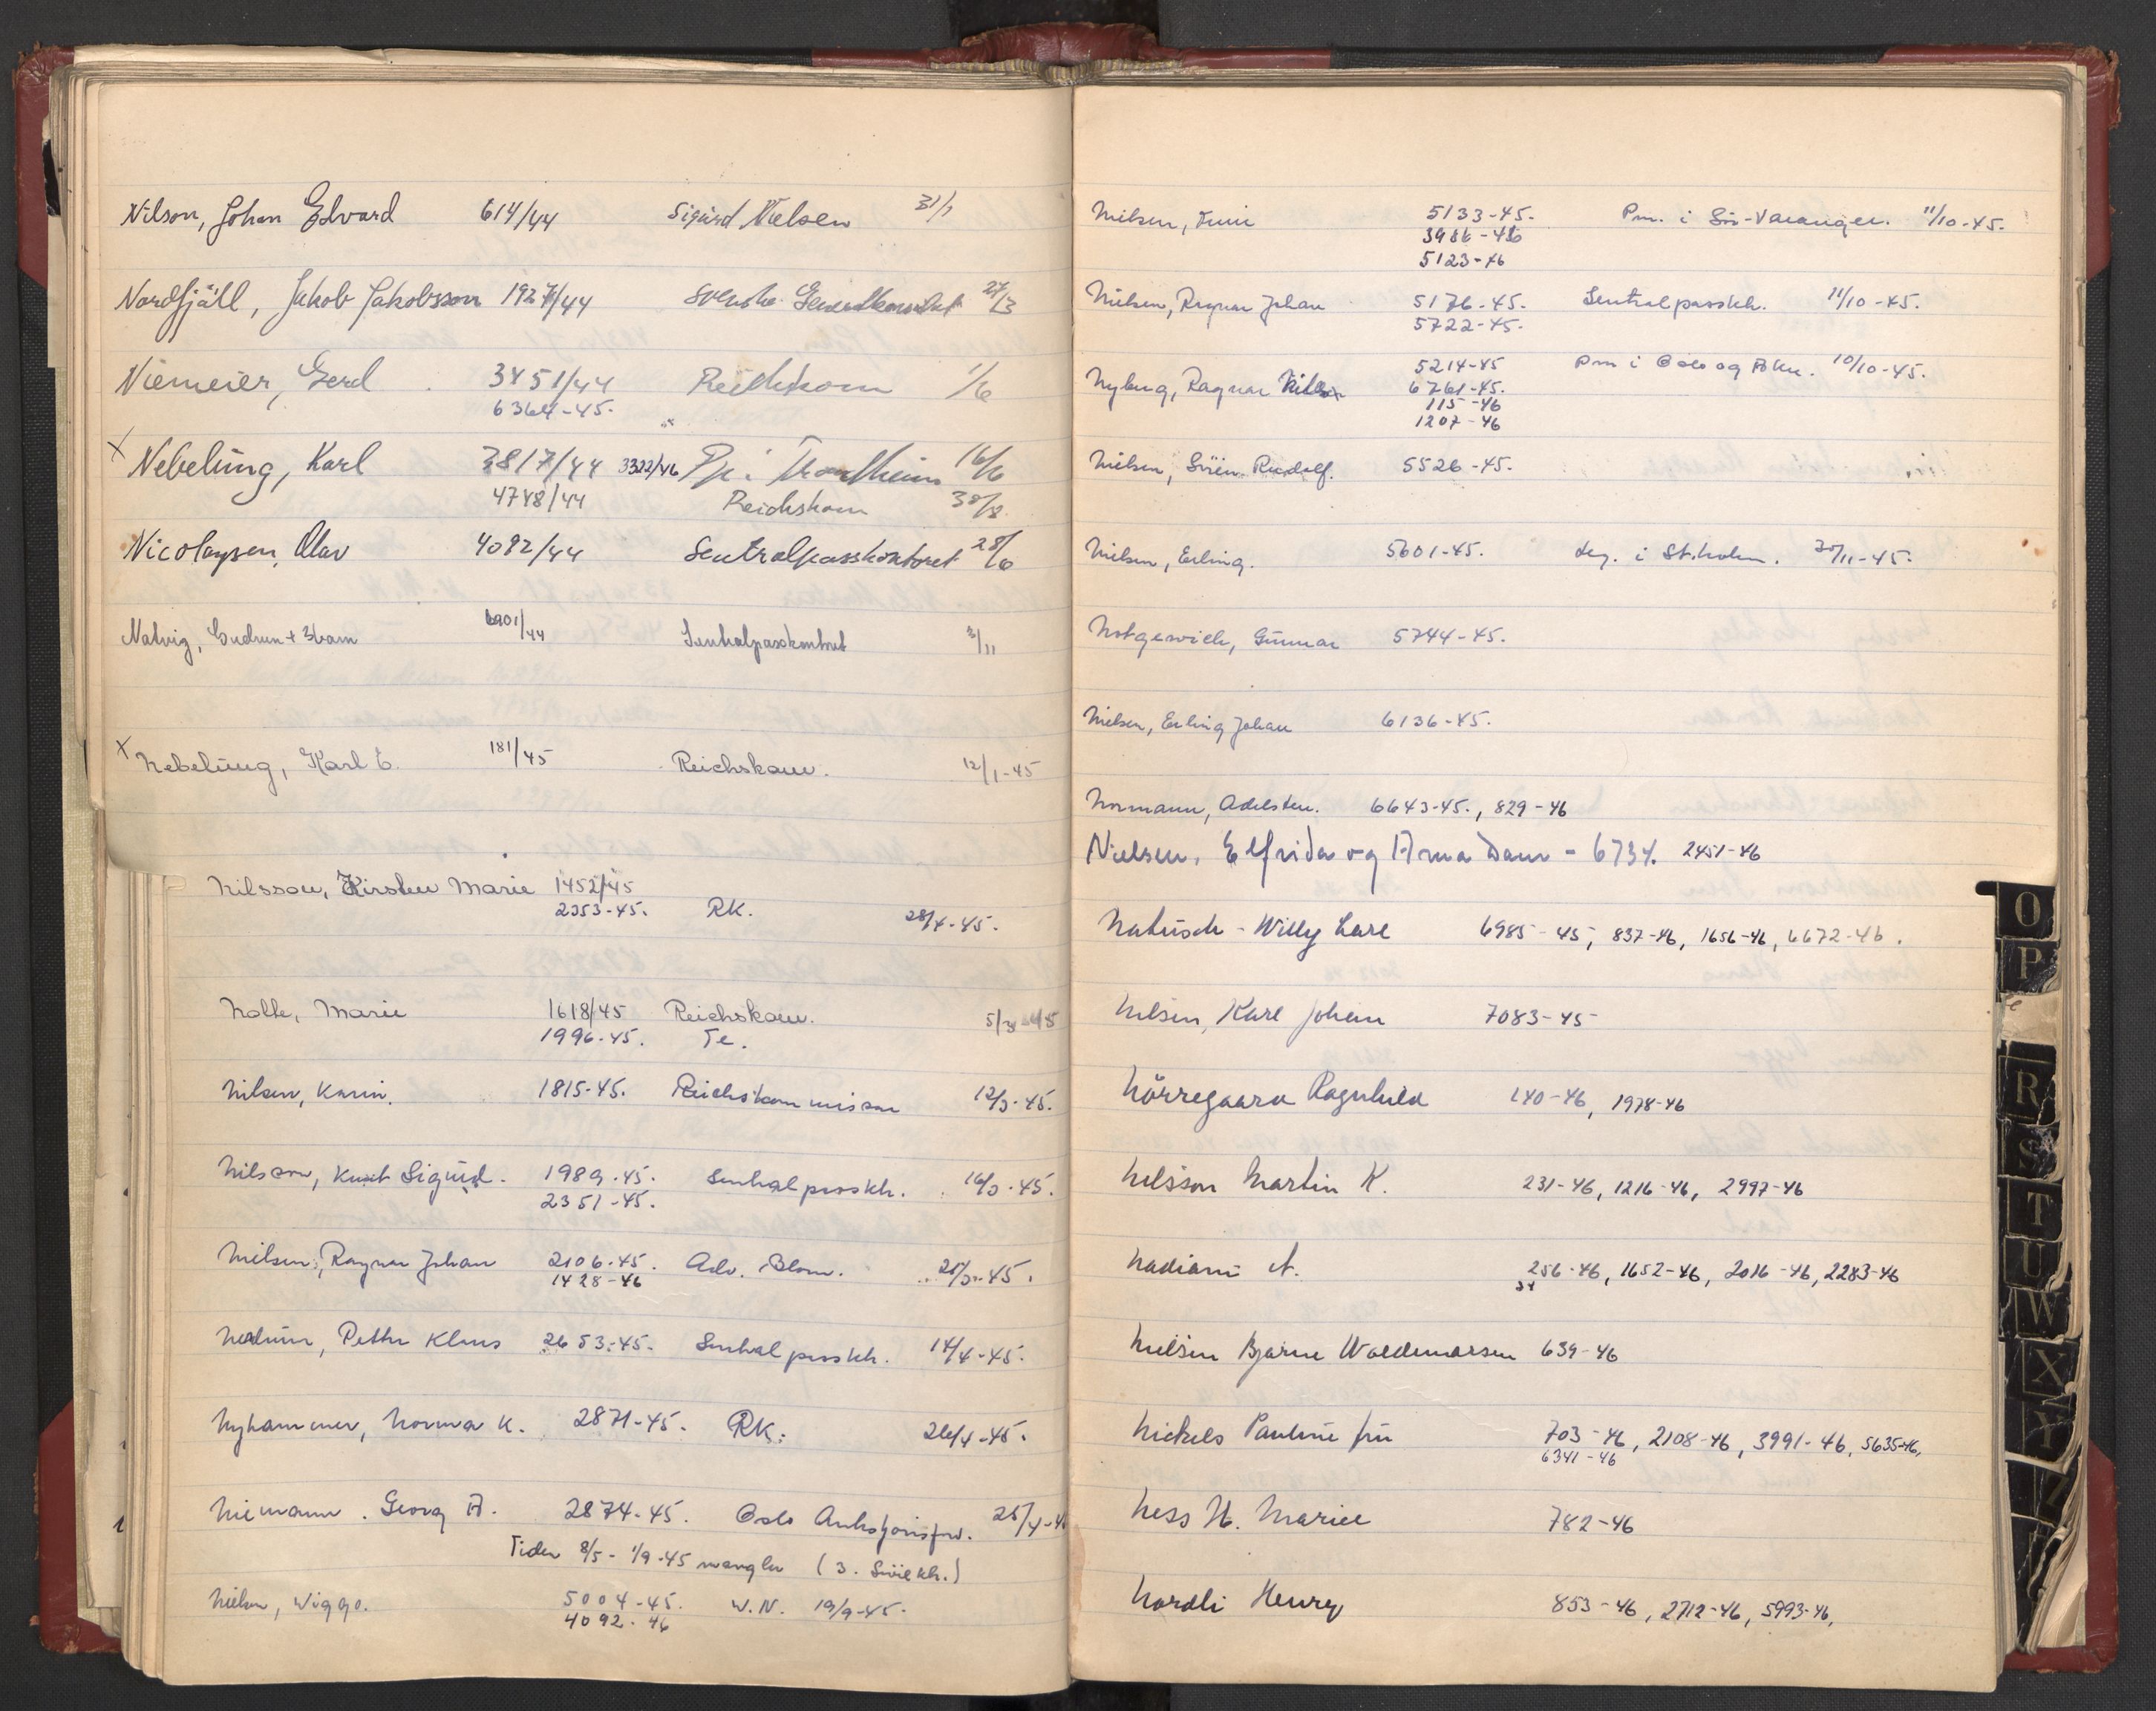 Nilson, Johan Edvard 614/44 Sigurd Nielsen 31/1
Nordfjäll, Jakob Jakobsson 1927/44 Svenske Generalkonsulat 27/3
Niemeier, Gerd 3451/44 Reichkom 1/6
6364-45.
x Nebelüng, Karl 3817/44 3322/46 Pp. i Trondheim 16/6
4748/44 Reichskom 30/8
Nicolaysen, Olav 4092/44 Sentralpasskontoret 28/6
Natvig, Gudrun + 3 barn 6901/44 Sentralpasskontoret 3/11
x Nebelüng, Karl E. 181/45 Reichskom. 12/1-45
Nilsson, Kirsten Marie 1452/45
2353-45. RK. 28/4-45.
Nolte, Marie 1618/45 Reichskom. 5/3-45
1996-45. Te.
Nilsen, Karin. 1815-45. Reichskommissar 12/3-45.
Nilsson, Knut Sigurd. 1989-45. Sentralpasskt. 16/3-45.
2351-45.
Nilsen, Ragnar Johan 2106-45. Adv. Blom. 21/3-45.
1428-46
Nedrum, Petter Klaus 2653-45. Sentralpasskt. 14/4-45.
Nyhammer, Norma K. 2871-45. RK. 26/4-45.
Niemann. Georg A. 2874-45. Oslo 25/4-4
Tiden 8/5 - 1/9-45 mangler (3. Siviekt.)
Nielsen, Wiggo. 5004-45. W.N. 19/9-45.
4092-46
Nilsen, 5133-45. Pm. i Sör-Varanger. 11/10-45.
3986-46
5123-46
Nilsen, Ragnar Johan 5176-45. Sentralpasskt. 11/10-45.
5722-45.
5214-45 Pm i Oslo og Aker. 10/10-45.
Nyberg, Ragnar Nils 6761-45.
115-46
1207-46
Nilsen, Svein Rudolf. 5526-45.
Nilsen, Erling. 5601-45. Leg. i St.holm. 30/11-45.
Notgewich, Günnar 5744-45.
Nielsen, Erling Johan 6136-45.
Normann, Adelsten. 6643-45., 829-46
Nielsen, Elfrida og Arna Dam - 6734. 2451-46
Natüsch - Willy Karl 6985-45, 837-46, 1656-46, 6672-46.
Nilsen, Karl Johan 7083-45
Nörregaard Ragnhild 140-46, 1978-46
Nilsson Martin K. 231-46, 1216-46, 2997-46
Nadiani A. 256-46, 1652-46, 2016-46, 2283-46
34
Nilsen Bjarne Woldemarsen 639-46
Nickels Pauline frü 703-46, 2108-46, 3991-46, 5635-46,
6341-46
Ness H. Mariee 782-46
Nordli Henry 853-46, 2712-46, 5993-46,
O
P
R
S
T
U
W
X
Y
Z